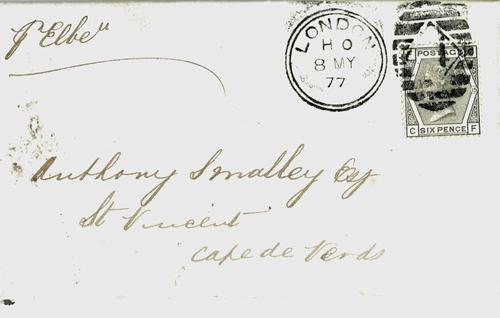 p "Elbe"
LONDON
H O
8 MY
77
POSTAGE
C SIX PENCE F
Anthony Smalley Esq
St Vincent
Cape de Verds